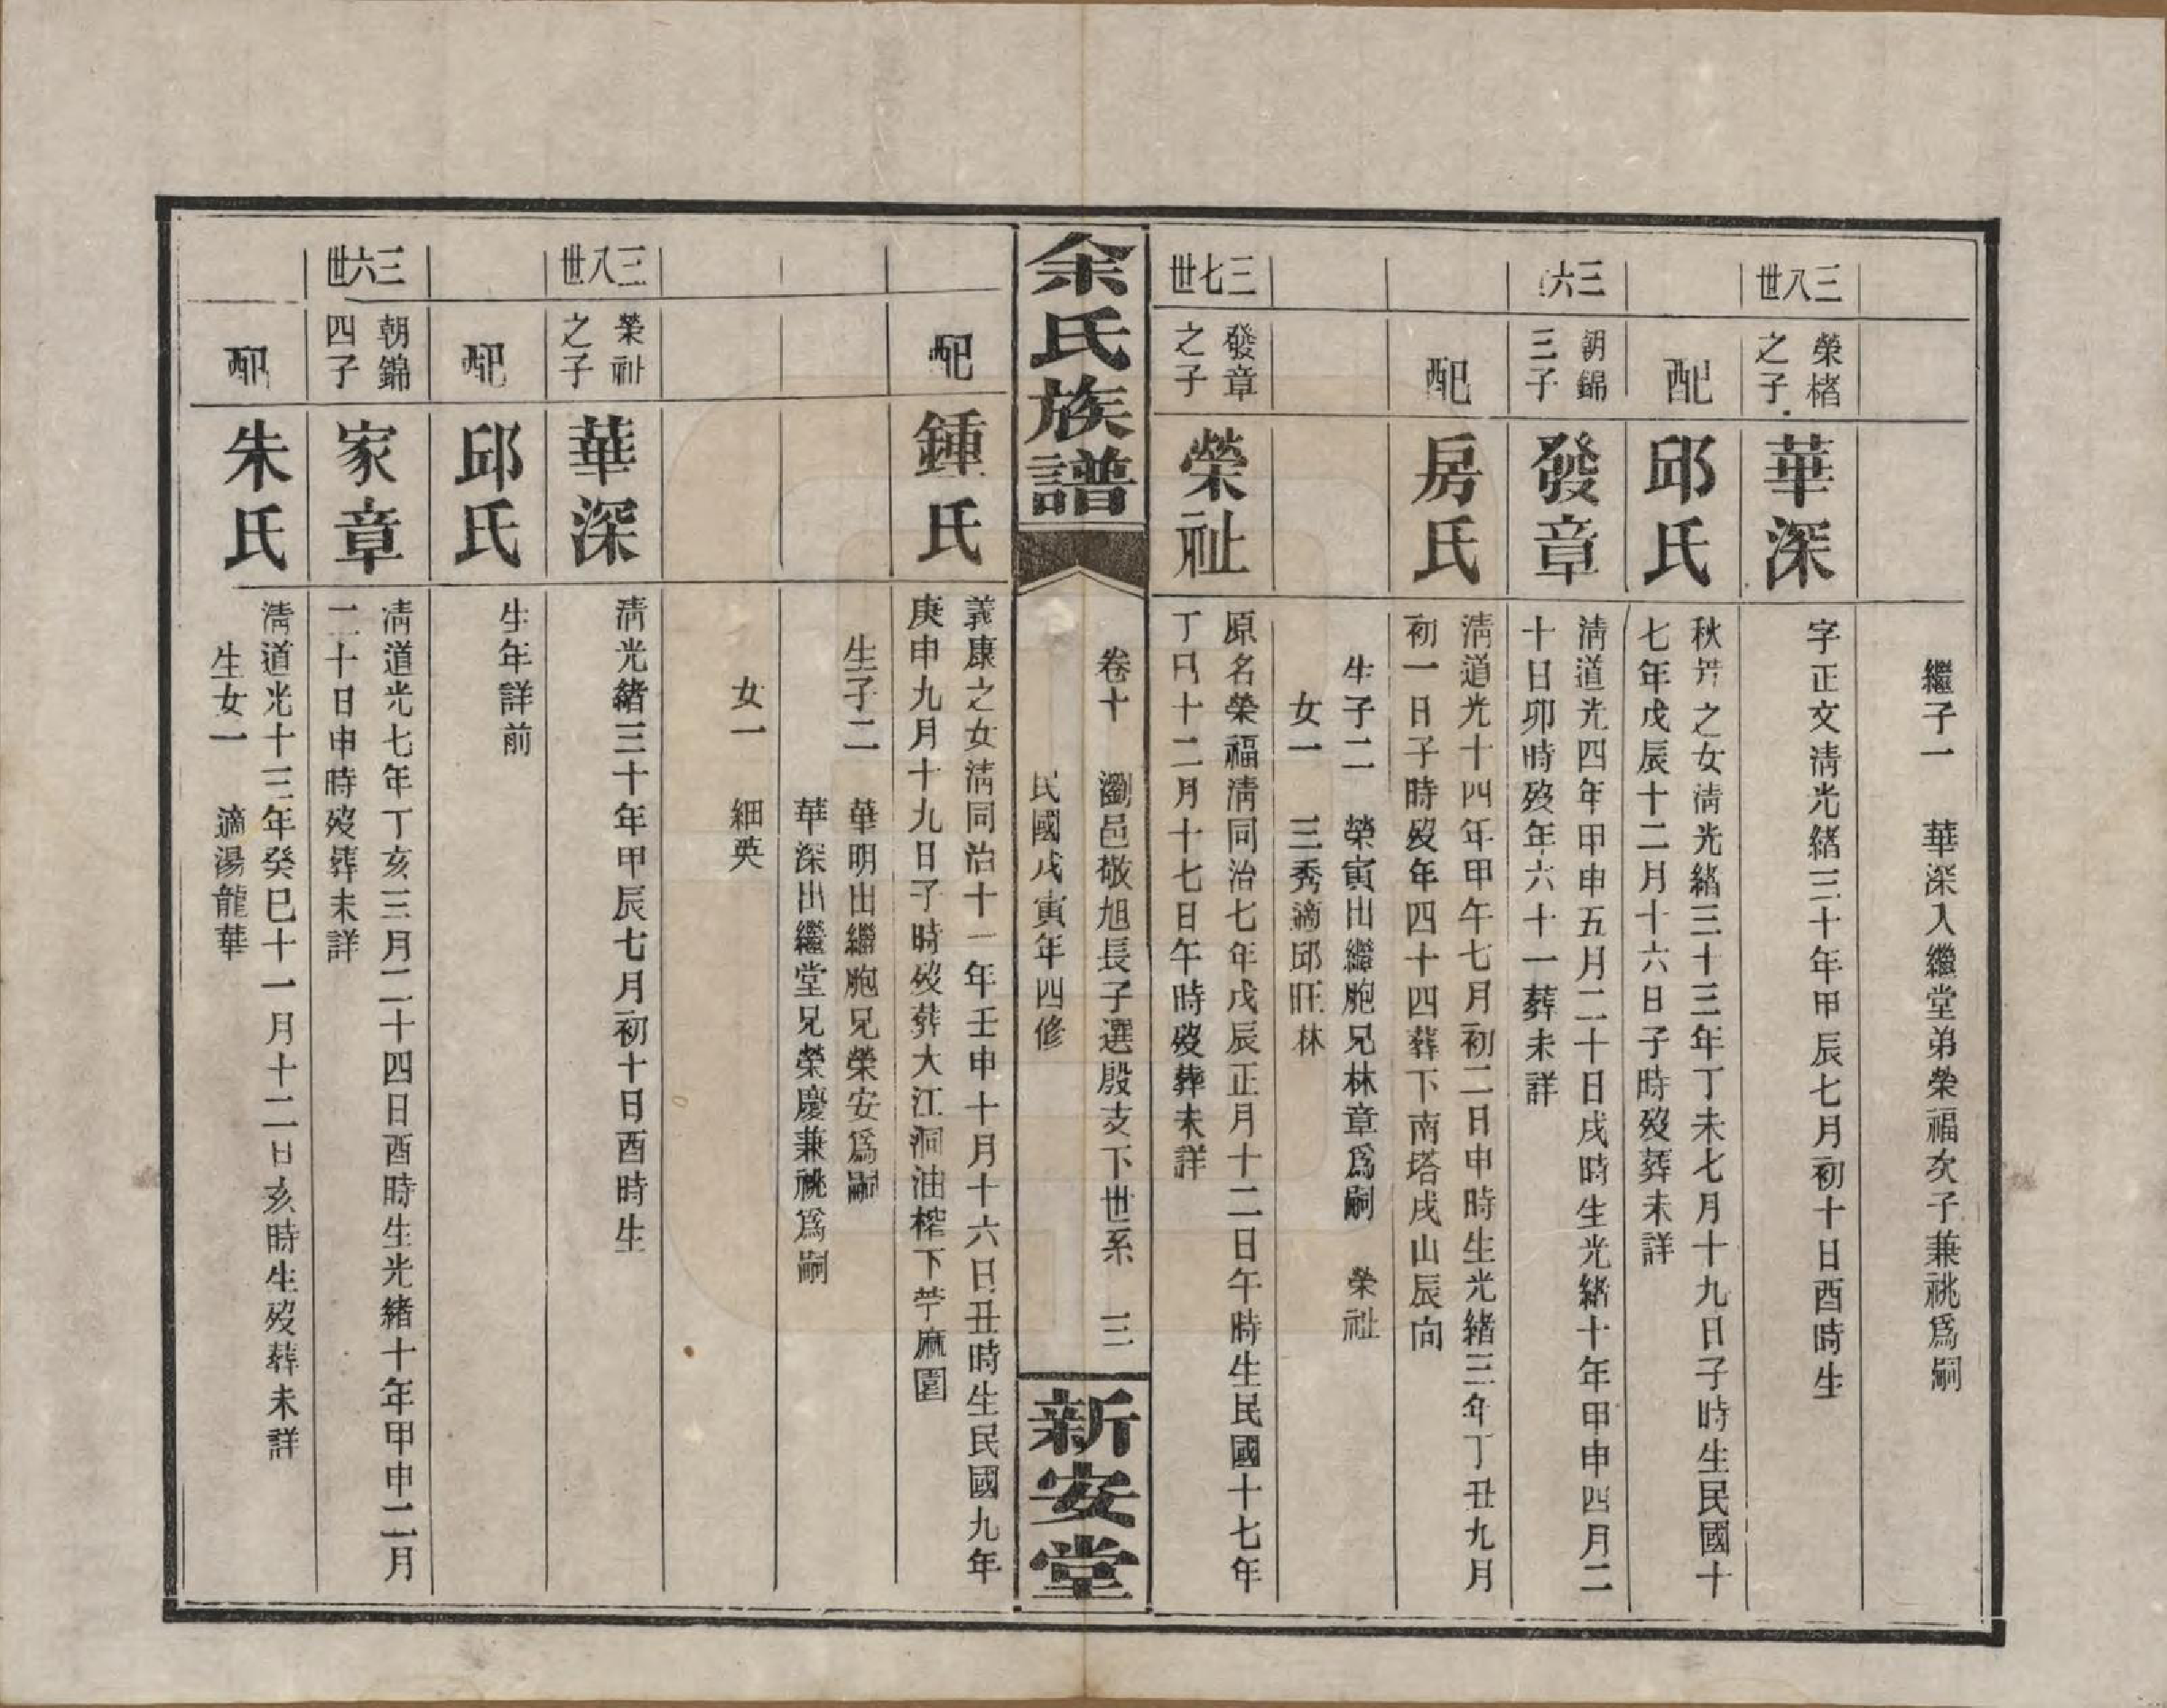 繼子一　華深入繼堂弟榮福次子兼祧爲嗣
三八世
榮楮
之子
華深
字正文淸光緒三十年甲辰七月初十日酉時生
配
邱氏
秋芳之女淸光緒三十三年丁未七月十九日子時生民國十
七年戊辰十二月十六日子時歿葬未詳
三六
朝錦
三子
發章
淸道光四年甲申五月二十日戌時生光緒十年甲申四月二
十日卯時歿年六十一葬未詳
配
房氏
淸道光十四年甲午七月初二日申時生光緒三年丁丑九月
初一日子時歿年四十四葬下南塔戌山辰向
生子二　榮寅出繼胞兄林章爲嗣　榮祉
女一　三秀適邱旺林
三七世
發章
之子
榮祉
原名榮福淸同治七年戊辰正月十二日午時生民國十七年
丁巳十二月十七日午時歿葬未詳
余氏族譜
卷十　瀏邑敬旭長子選殷支下世系　三
民國戊寅年四修
新安堂
配
鍾氏
義康之女淸同治十一年壬申十月十六日丑時生民國九年
庚申九月十九日子時歿葬大江洞油榨下苧麻園
生子二　華明出繼胞兄榮安爲嗣
華深出繼堂兄榮慶兼祧爲嗣
女一　細英
三八世
榮祉
之子
華深
淸光緒三十年甲辰七月初十日酉時生
配
邱氏
生年詳前
三六世
朝錦
四子
家章
淸道光七年丁亥三月二十四日酉時生光緒十年甲申二月
二十日申時歿葬未詳
配
朱氏
淸道光十三年癸巳十一月十二日亥時生歿葬未詳
生女一　適湯龍華